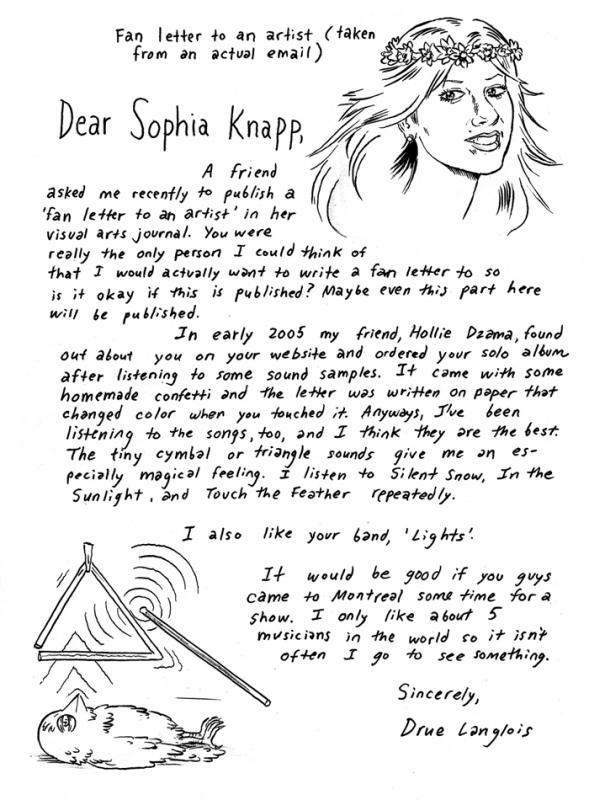 Fan letter to an artist (taken
from an actual email)
Dear Sophia Knapp,
A friend
asked me recently to publish a
'fan letter to an artist' in her
visual arts journal. You were
really the only person I could think of
that I would actually want to write a fan letter to so
is it okay if this is published? Maybe even this part here
will be published.
In early 2005 my friend, Hollie Dzama, found
out about you on your website and ordered your solo album
after listening to some sound samples. It came with some
homemade confetti and the letter was written on paper that
changed color when you touched it. Anyways, I've been
listening to the songs, too, and I think they are the best.
The tiny cymbal or triangle sounds give me an es-
pecially magical feeling. I listen to Silent Snow, In the
Sunlight, and Touch the Feather repeatedly.
I also like your band, 'Lights'.
It would be good if you guys
came to Montreal some time for a
show. I only like about 5
musicians in the world so it isn't
often I go to see something.
Sincerely,
Drue Langlois